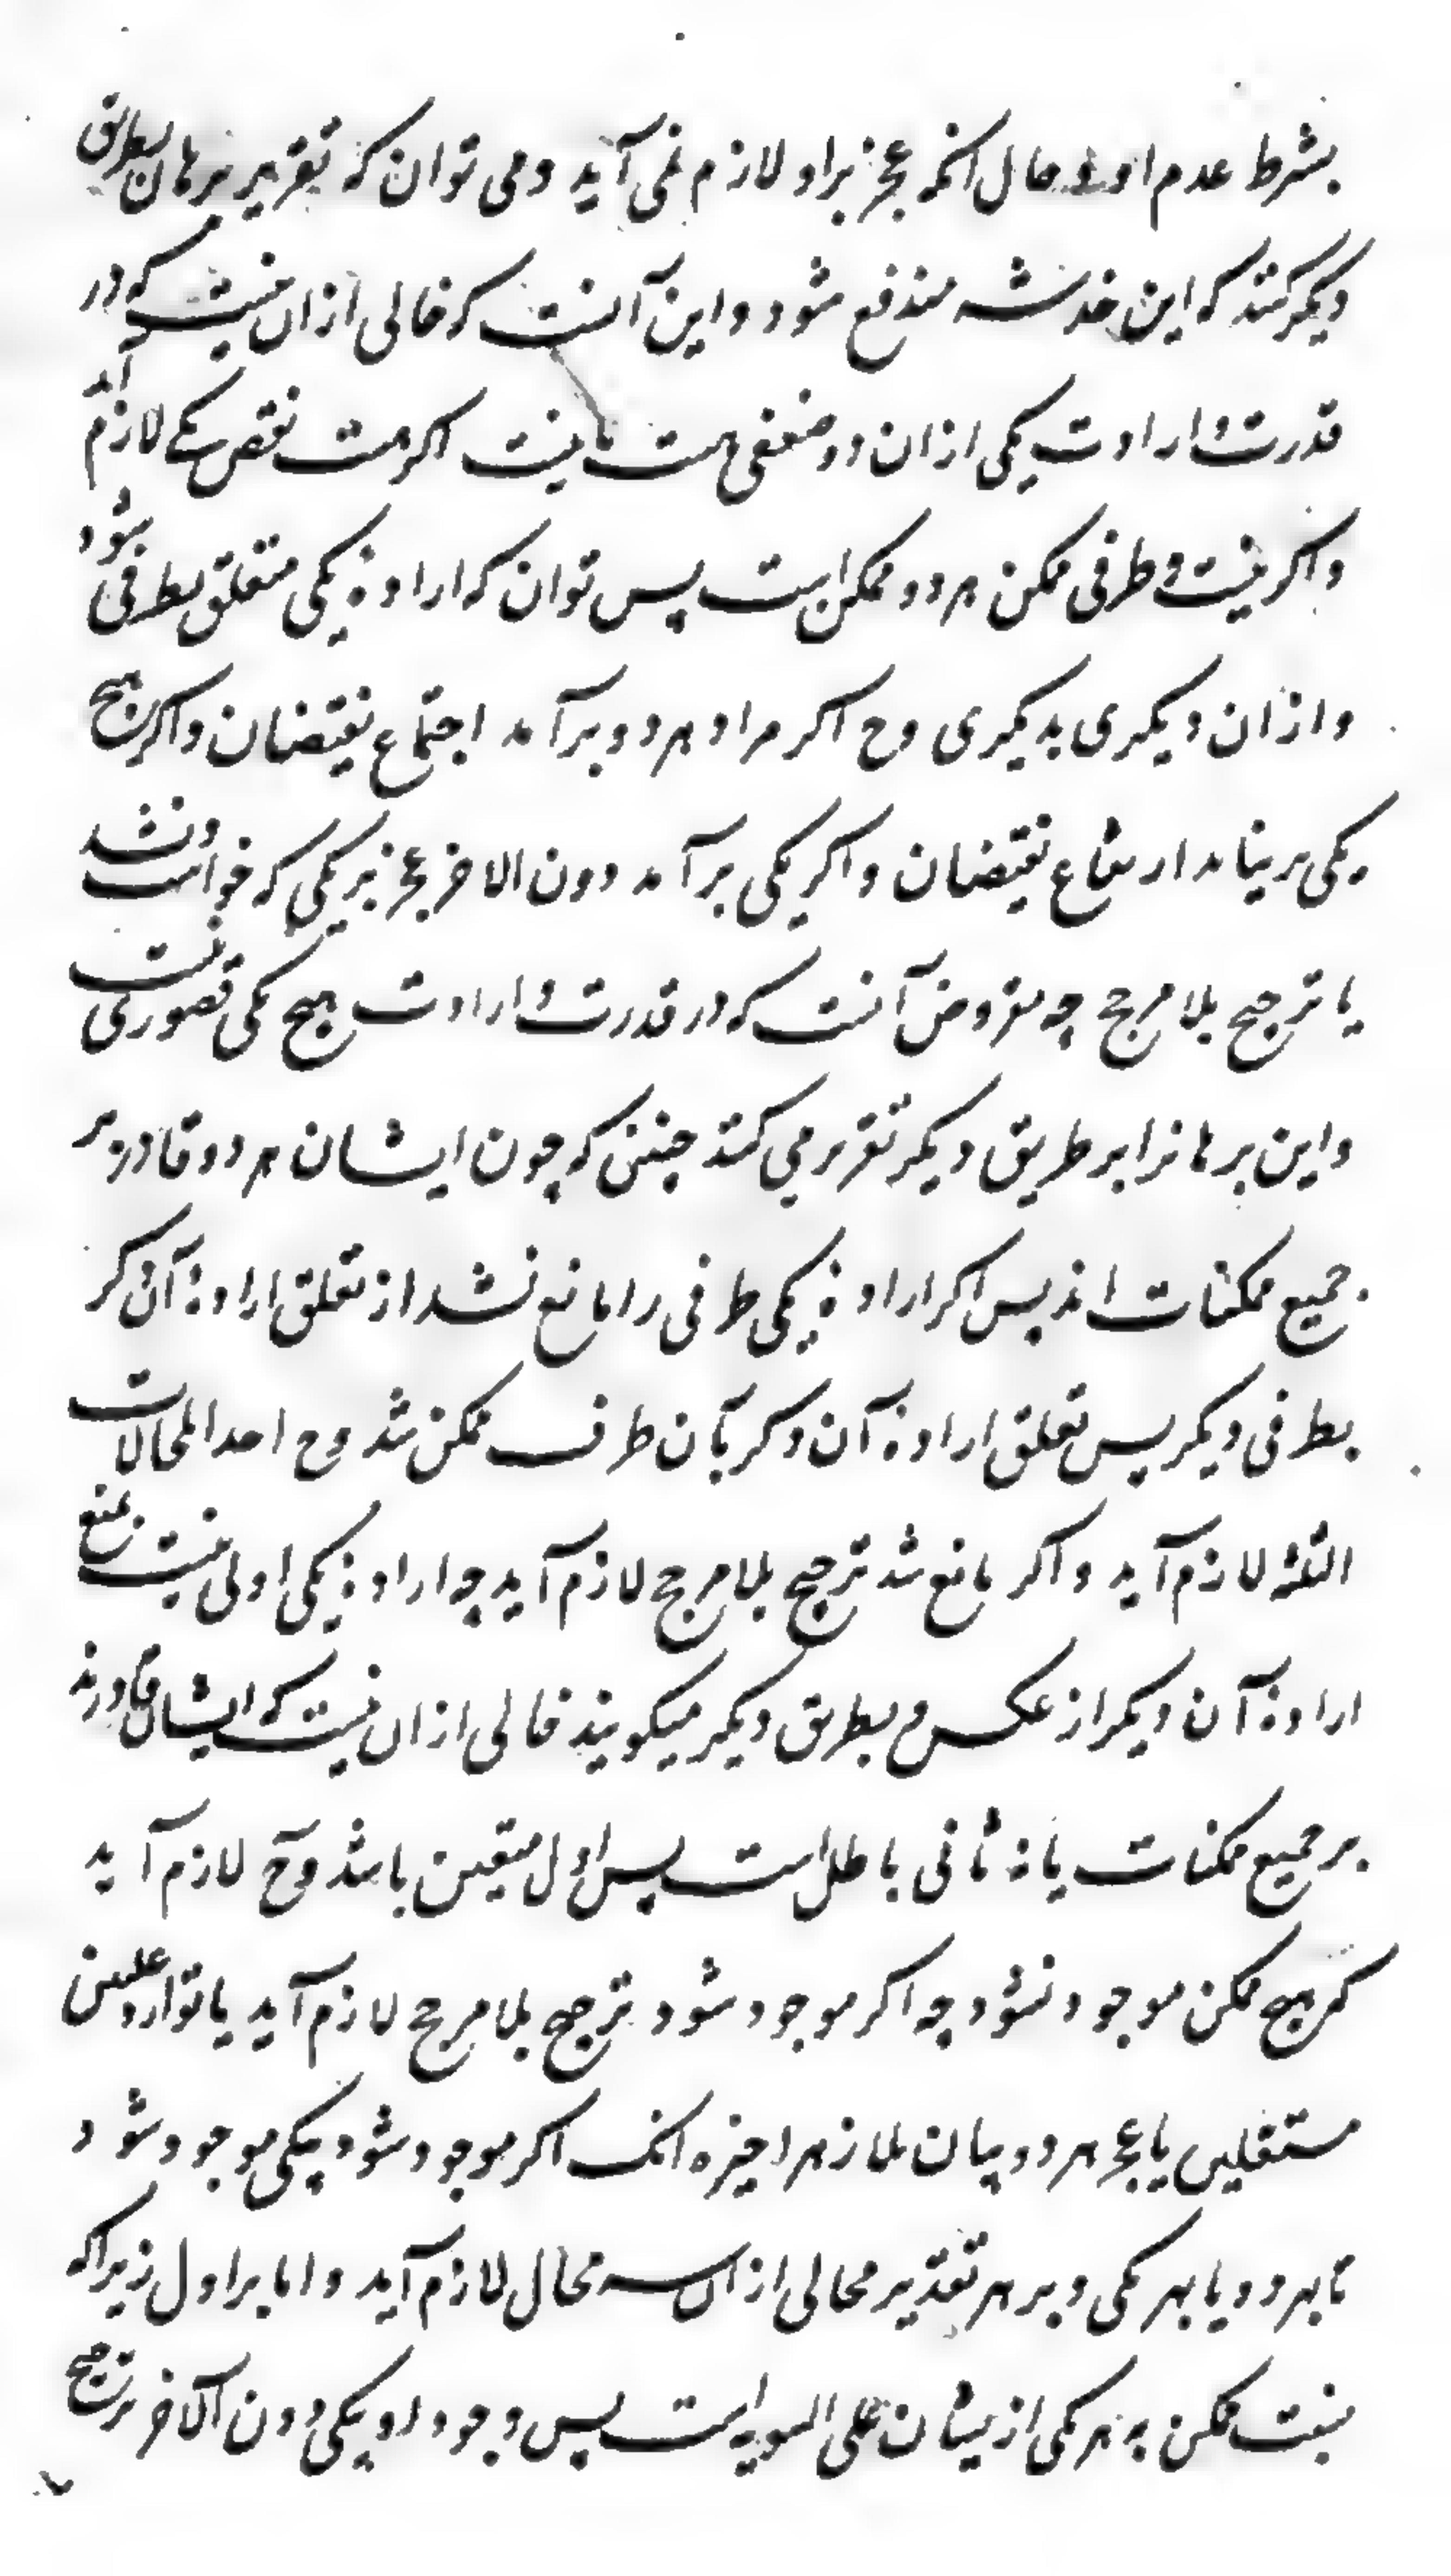 بشرط عدم او و حال آنکه عجز بر او لازم نمی آید و می توان که تقریر برهان بطریق
دیگر کنند که این خدشه مندفع شود و این آنست که خالی ازان نیست که در
قدرت و ارادت یکی ازان دو ضعفی هست یا نیست اگر هست نقص یکی لازم آید
و اگر نیست و طرفی ممکن هردو ممکن است پس توان که ارادۀ یکی متعلق بطرفی شود
و ازان دیگری بدیگری وح اگر مراد هردو برآمد اجتماع نقیضان و اگر هیچ
یکی بر نیامد ارتفاع نقیضان و اگر یکی برآمد دون الاخر عجز یکی که خواست و نشد
یا ترجیح بلا مرجح چه مفروض آنست که در قدرت و ارادت هیچ یکی قصوری نیست
و این برهانرا بر طریق دیگر تقریر می کنند چنین که چون ایشان هردو قادر بر
جمیع ممکنات اند پس اگر ارادۀ یکی طرفی را مانع نشد از تعلق ارادۀ آن دگر
بطرفی دیگر پس تعلق ارادۀ آن دگر بآن طرف ممکن شد وح احد المحالات
الثلثه لازم آید و اگر مانع شد ترجیح بلا مرجح لازم آید چه ارادۀ یکی اولی نیست بمنع
ارادۀ آن دیگر از عکس و بطریق دیگر میگویند خالی ازان نیست که ایشان قادرند
بر جمیع ممکنات یا نه ثانی باطل است پس اول متعین باشد وح لازم آید
که هیچ ممکن موجود نشود چه اگر موجود شود ترجیح بلا مرجح لازم آید یا توارد علتین
مستقلین یا عجز هردو بیان ملازمه اخیره آنک اگر موجود شود بیکی موجود شود
یا بهردو یا بهر یکی و بر هر تقدیر محالی ازان سه محال لازم آید و اما بر اول زیرا که
نسبت ممکن به هر یکی از یشان علی السویه است پس وجود او بیکی دون الآخر ترجیح